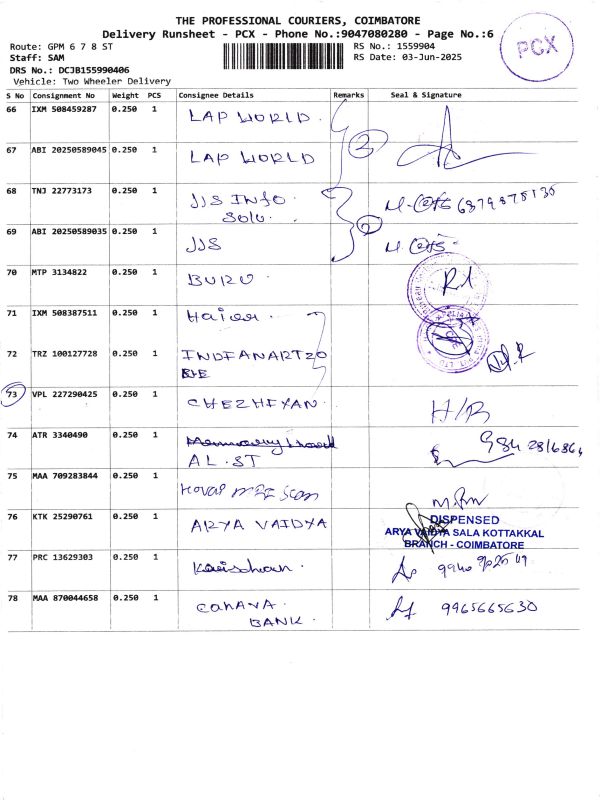 THE PROFESSIONAL COURIERS, COIMBATORE
Delivery Runsheet - PCX - Phone No.:9047080280 - Page No.:6
Route: GPM 6 7 8 ST
RS No.: 1559904
PCX
Staff: SAM
RS Date: 03-Jun-2025
DRS No.: DCJB155990406
Vehicle: Two Wheeler Delivery
S No Consignment No Weight PCS Consignee Details Remarks Seal & Signature
66 IXM 508459287 0.250 1 LAP WORLD.
2
67 ABI 20250589045 0.250 1 LAP WORLD
68 TNJ 22773173 0.250 1 JJS INFO.
SOLU.
2
69 ABI 20250589035 0.250 1 JJS
70 MTP 3134822 0.250 1 BURO.
71 IXM 508387511 0.250 1 Haier.
72 TRZ 100127728 0.250 1 INDIANARTZO
73 VPL 227290425 0.250 1 CHEZHIYAN. H/R
74 ATR 3340490 0.250 1
AL.ST
75 MAA 709283844 0.250 1
76 KTK 25290761 0.250 1 ARYA VAIDYA
DISPENSED
ARYA VAIDYA SALA KOTTAKKAL
BRANCH - COIMBATORE
77 PRC 13629303 0.250 1
78 MAA 870044658 0.250 1 CANARA 9965665630
BANK.